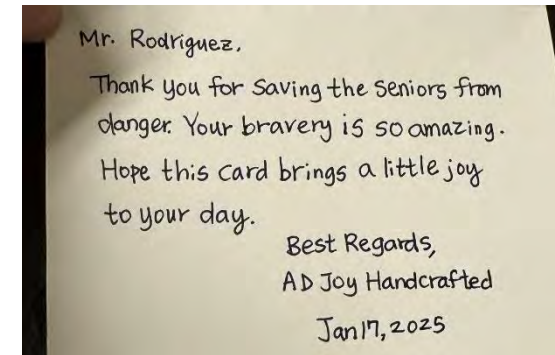 Mr. Rodriguez,
Thank you for saving the seniors from
danger. Your bravery is so amazing.
Hope this card brings a little joy
to your day.
Best Regards,
AD Joy Handcrafted
Jan 17, 2025